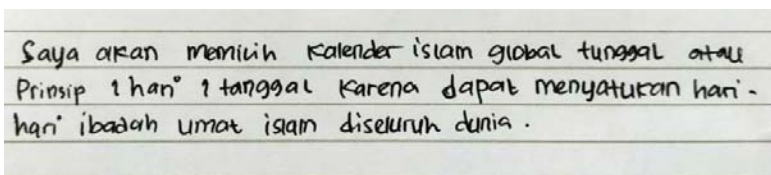 Saya akan memilih kalender islam global tunggal atau
Prinsip 1 hari 1 tanggal karena dapat menyatukan hari-
hari ibadah umat islam diseluruh dunia.